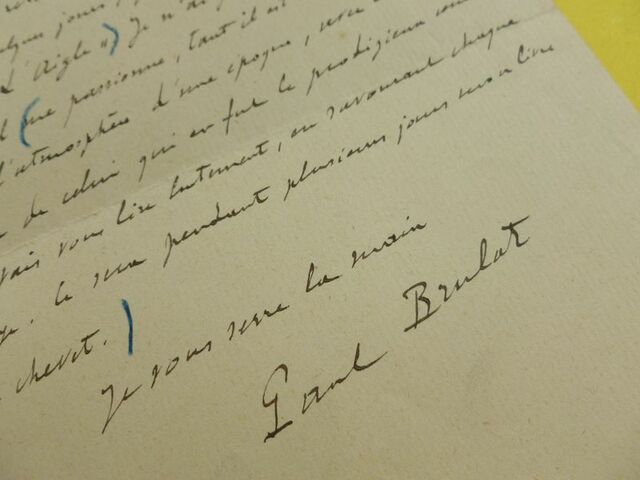 quelques jours,
L'Aigle ») Je n'ai
(me passionne, tant il est
l'atmosphère d'une époque, avec
de celui qui en fut le prodigieux
vais vous lire lentement, en savourant chaque
. Ce sera pendant plusieurs jours mon livre
chevet.)
Je vous serre la main
Paul Brulat